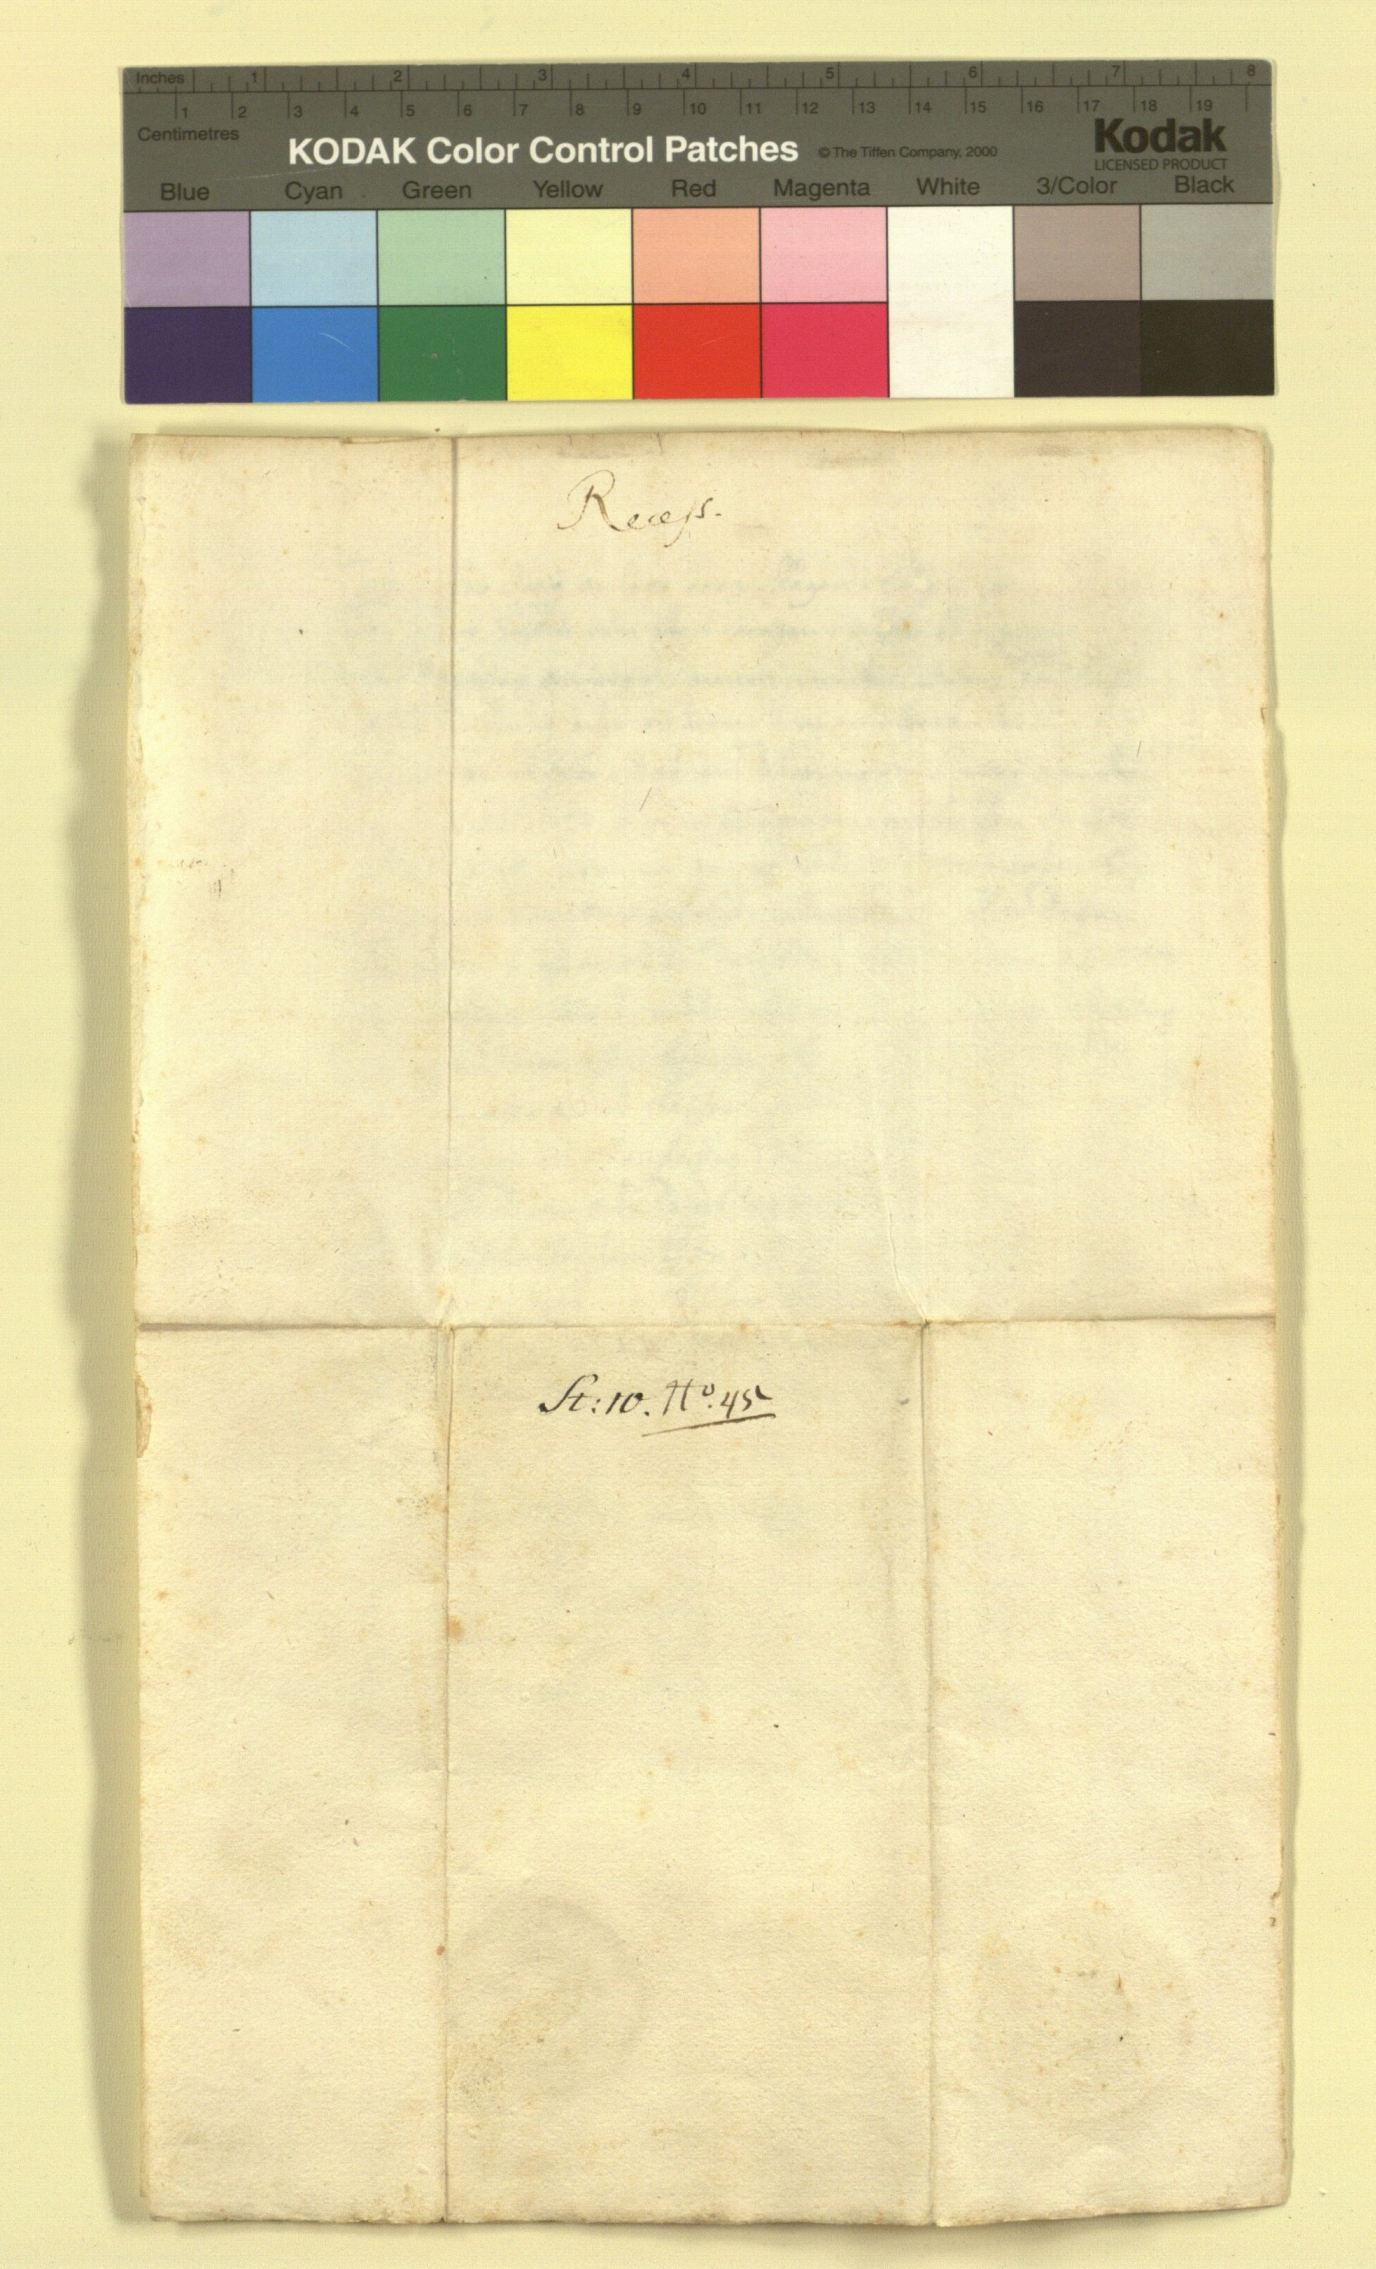 Inches 1 2 3 4 5 6 7 8
1 2 3 4 5 6 7 8 9 10 11 12 13 14 15 16 17 18 19
Centimetres
KODAK Color Control Patches © The Tiffen Company, 2000
Kodak
LICENSED PRODUCT
Blue Cyan Green Yellow Red Magenta White 3/Color Black
Recess.
St: 10. No. 45